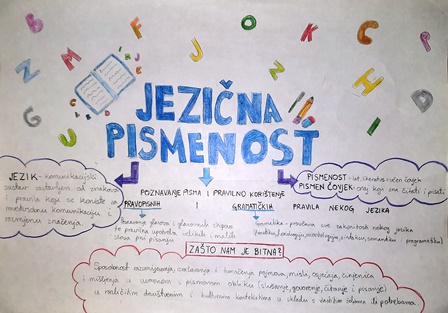 JEZIČNA
PISMENOST
JEZIK - komunikacijski
sustav sastavljen od znakova
i pravila koji se koriste za
međusobnu komunikaciju i
razmjenu značenja.
PISMENOST - lat. literatus = učen čovjek
PISMEN ČOVJEK - onaj koji zna čitati i pisati
POZNAVANJE PISMA I PRAVILNO KORIŠTENJE
PRAVOPISNIH I GRAMATIČKIH PRAVILA NEKOG JEZIKA
Poznavanje glasova i glasovnih skupova
te pravilna upotreba velikih i malih
slova pri pisanju
Gramatika - proučava sve zakonitosti nekog jezika
(fonetika, fonologija, morfologija, sintaksa, semantika i pragmatika)
ZAŠTO NAM JE BITNA?
Sposobnost razumijevanja, izražavanja i tumačenja pojmova, misli, osjećaja, činjenica
i mišljenja u usmenom i pismenom obliku (slušanje, govorenje, čitanje i pisanje)
u različitim društvenim i kulturnim kontekstima u skladu s vlastitim željama ili potrebama.
B
N
M
F
J
O
K
C
P
Z
G
U
C
Z
H
D
I